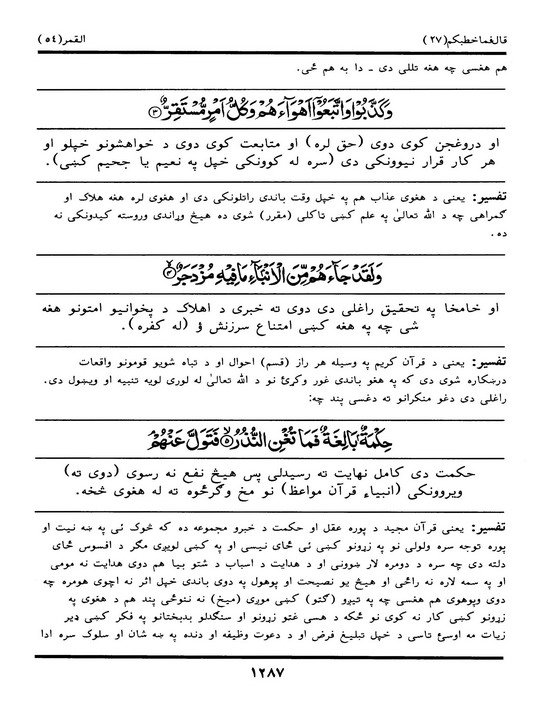 قال فما خطبكم (۲۷)
القمر (٥٤)
هم هغسې چه هغه تللی دی ـ دا به هم ځی.
وَكَذَّبُوا وَاتَّبَعُوا أَهْوَاءَهُمْ وَكُلُّ أَمْرٍ مُّسْتَقِرٌّ ③
او دروغجن کوی دوی (حق لره) او متابعت کوی دوی د خواهشونو خپلو او
هر کار قرار نیوونکی دی (سره له کوونکی خپل په نعیم یا جحیم کښی).
تفسیر: یعنی د هغوی عذاب هم په خپل وقت باندی راتلونکی دی او هغوی لره هغه هلاک او
ګمراهی چه د الله تعالیٰ په علم کښی ټاکلی (مقرر) شوی ده هیڅ وړاندی وروسته کیدونکی نه
ده.
وَلَقَدْ جَاءَهُم مِّنَ الْأَنبَاءِ مَا فِيهِ مُزْدَجَرٌ ④
او خامخا په تحقیق راغلی دی دوی ته خبری د اهلاک د پخوانیو امتونو هغه
شی چه په هغه کښی امتناع سرزنش ؤ (له کفره).
تفسیر: یعنی د قرآن کریم په وسیله هر راز (قسم) احوال او د تباه شویو قومونو واقعات
درښکاره شوی دی که په هغو باندی غور وکړئ نو د الله تعالیٰ له لوری لویه تنبیه او ویښول دی.
راغلی دی دغو منکرانو ته دغسی پند چه:
حِكْمَةٌ بَالِغَةٌ فَمَا تُغْنِ النُّذُرُ ⑤ فَتَوَلَّ عَنْهُمْ
حکمت دی کامل نهایت ته رسیدلی پس هیڅ نفع نه رسوی (دوی ته)
ویروونکی (انبیاء قرآن مواعظ) نو مخ وګرځوه ته له هغوی څخه.
تفسیر: یعنی قرآن مجید د پوره عقل او حکمت د خبرو مجموعه ده که څوک ئی په ښه نیت او
پوره توجه سره ولولی نو په زړونو کښی ئی ځای نیسی او په کښی لویږی مګر د افسوس ځای
دلته دی چه سره د دومره لار ښوونی او د هدایت د اسباب د شتو بیا هم دوی هدایت نه مومی
او په سمه لاره نه راځی او هیڅ یو نصیحت او پوهول په دوی باندی خپل اثر نه اچوی هومره چه
دوی وپوهوی هم هغسی چه په تیږو (ګټو) کښی موږی (میخ) نه ننوځی پند هم د هغوی په
زړونو کښی کار نه کوی نو ځکه د هسی غټو زړونو او سنګدلو بدبختانو په فکر کښی ډیر
زیات مه اوسئ تاسی د خپل تبلیغ فرض او د دعوت وظیفه او دنده په ښه شان او سلوک سره ادا
١٢٨٧